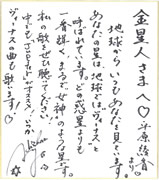 金星人さまへ♡ 平原綾香より
地球からいつもあなたを見てます。
あなたの星は、地球では、ヴィーナスと
呼ばれています。どの惑星よりも
一番輝く、まるで女神のような星です。
私の歌をぜひ聴いてください。
中でも、"JUPITER" オススメ。いつか
ヴィーナスの曲も歌います!